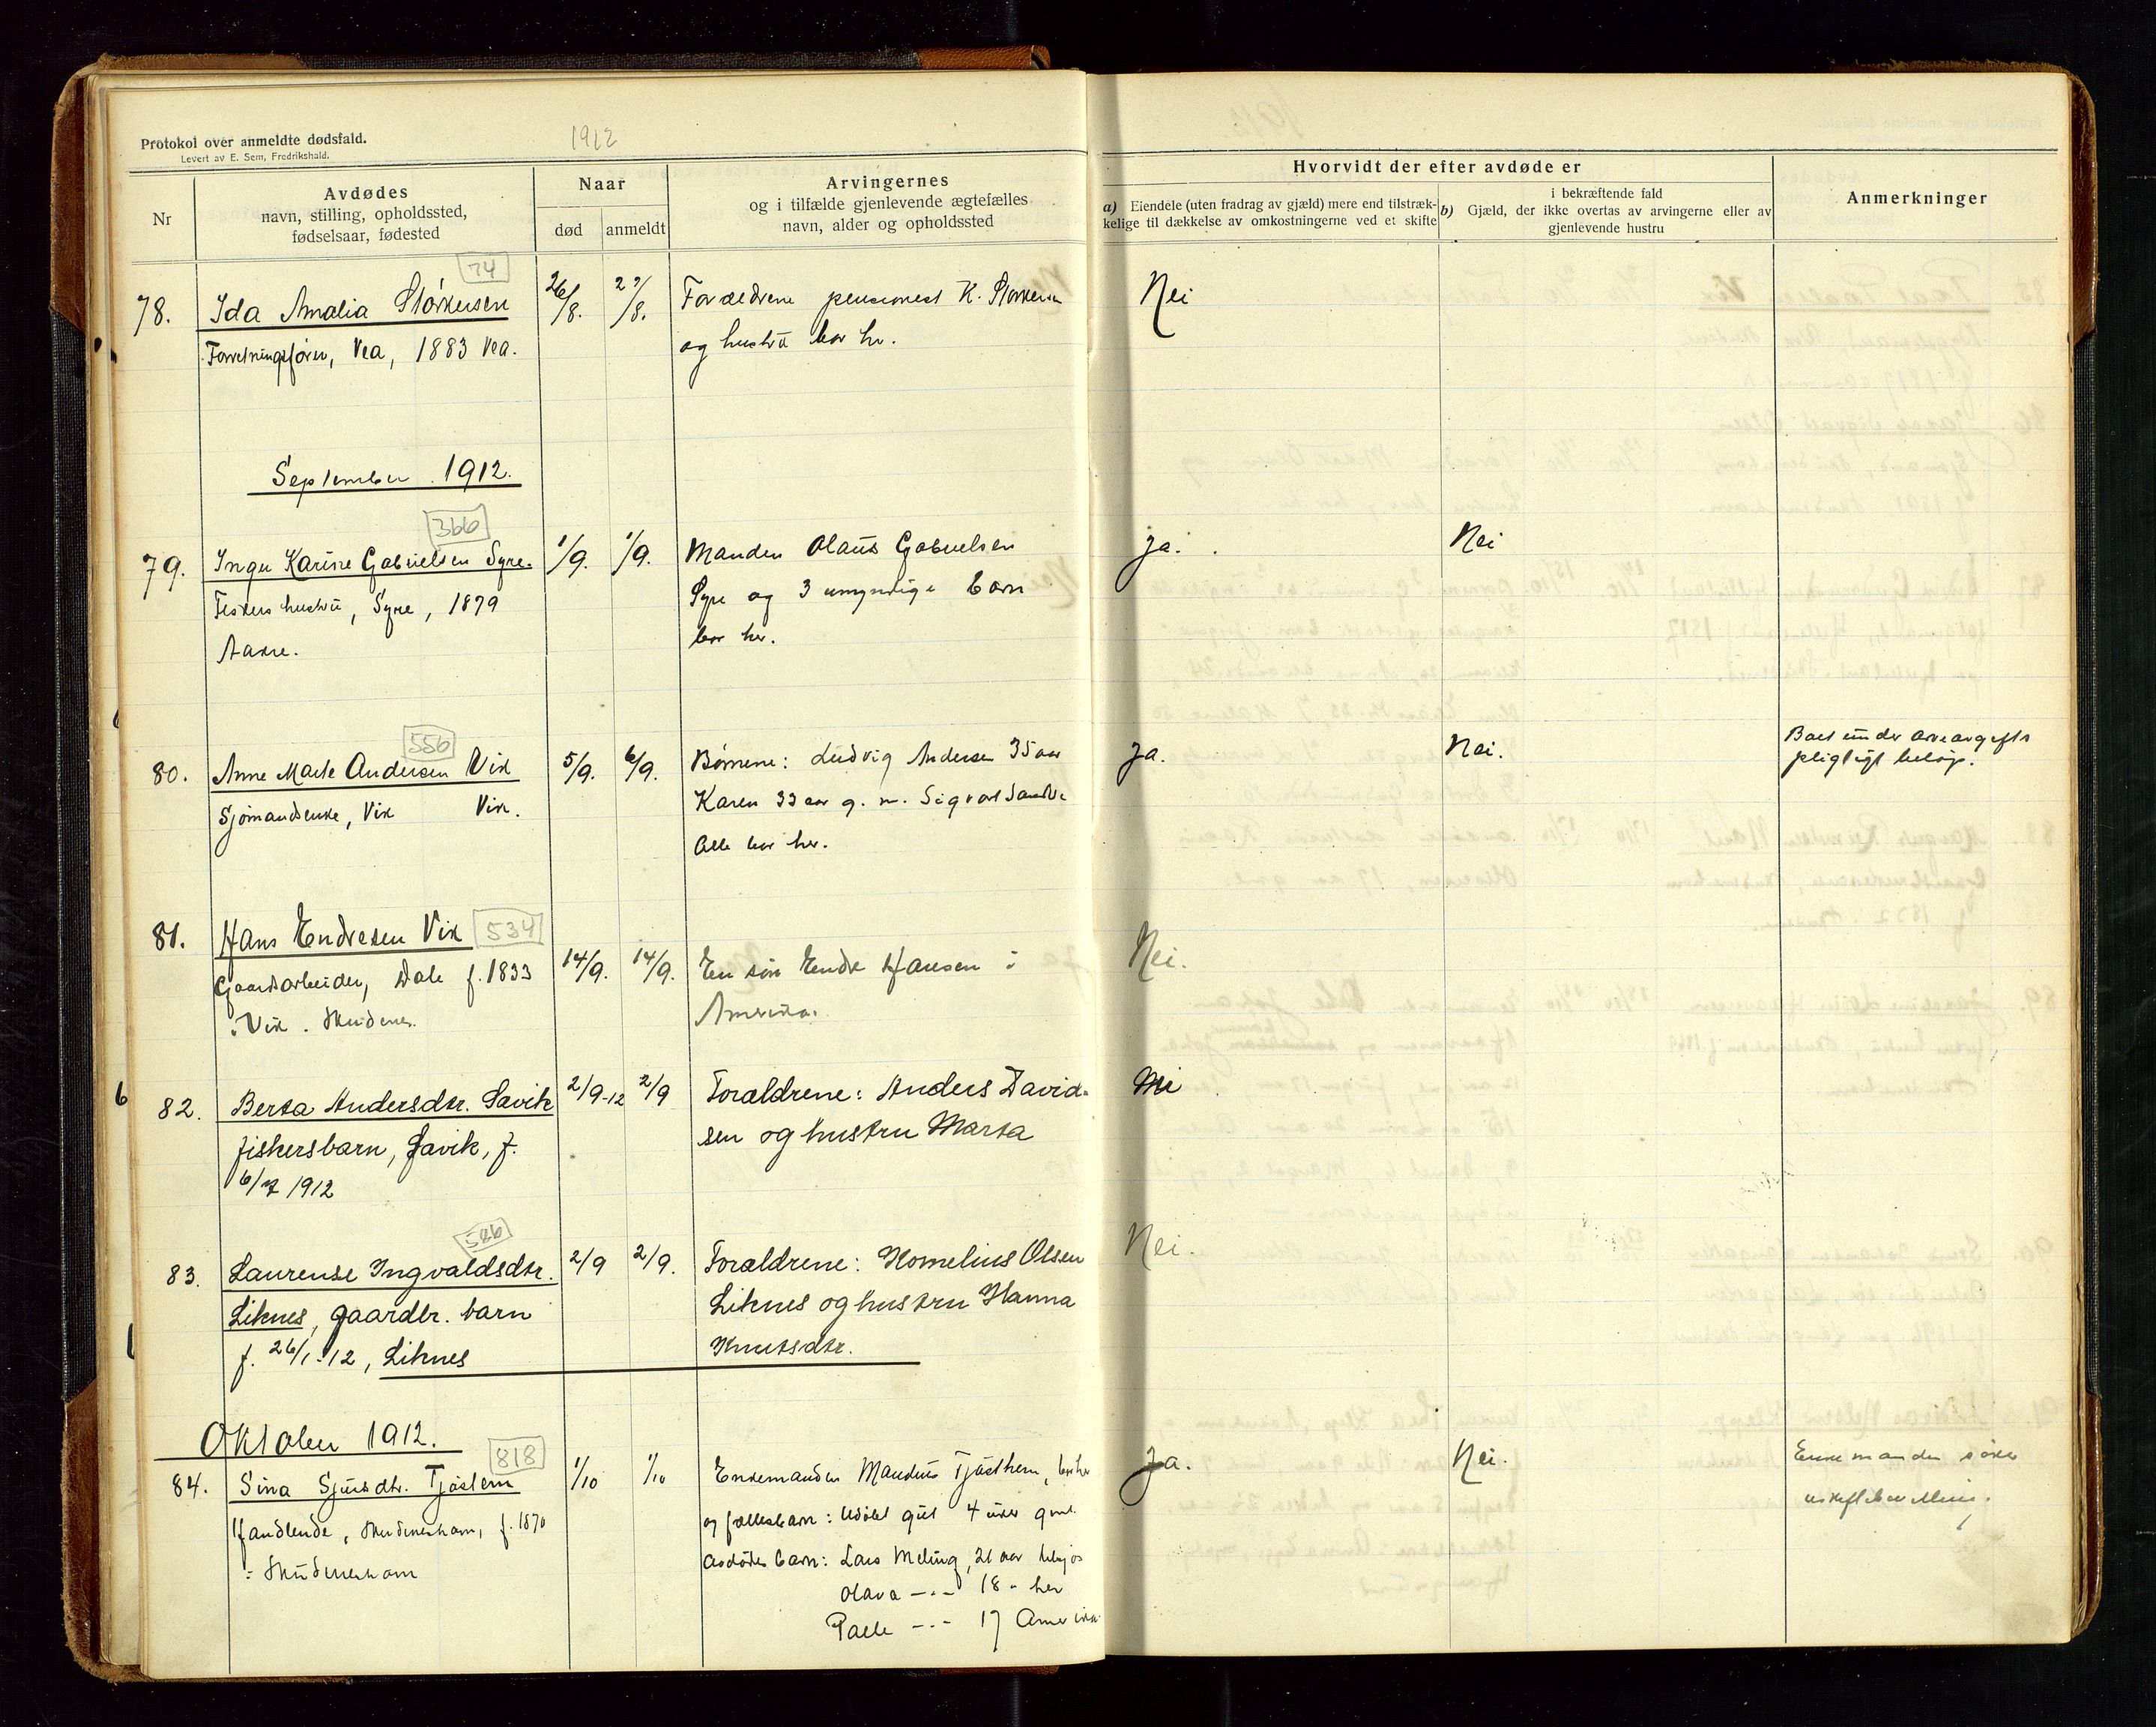 Protokol over anmeldte dødsfald.
Levert av E. Sem, Fredrikshald.
1912
Nr
Avdødes
navn, stilling, opholdssted,
fødselsaar, fødested
Naar
død
anmeldt
Arvingernes
og i tilfælde gjenlevende ægtefælles
navn, alder og opholdssted
Hvorvidt der efter avdøde er
a) Eiendele (uten fradrag av gjæld) mere end tilstræk-
kelige til dækkelse av omkostningerne ved et skifte
b) i bekræftende fald
Gjæld, der ikke overtas av arvingerne eller av
gjenlevende hustru
Anmerkninger
74
78. Ida Amalia Störkersen 26/8. 27/8. Forældrene pensionist K. Storkersen Nei
Forretningsfører, Vea, 1883 Vea. og hustrü bor her.
September 1912.
366
79. Inga Karine Gabrielsen Syre. 1/9. 1/9. Manden Olaüs Gabrielsen Ja. Nei
Fiskers hustrü, Syre, 1879 Syre og 3 umyndige barn
Aakre. bor her.
556
80. Anne Marte Andersen Vik 5/9. 6/9. Børnene: Ludvig Andersen 35 aar Ja. Nei. Boet ünder arveavgifts
Sjømandsenke, Vik Vik. Karen 33 aar g. m. Sigvart Sandve pligtigt beløp.
Alle bor her.
81. Hans Endresen Vik 534 14/9. 14/9. En søn Endre Hansen i Nei.
Gaardsarbeider, Dale f. 1833 Amerika.
i Vik. Skudenes.
82. Berta Andersdtr. Sævik 2/9-12 2/9 Forældrene: Anders David- Nei
fiskersbarn, Sævik, f. sen og hustru Marta
6/7 1912
586
83. Laurense Ingvaldsdtr. 2/9 2/9. Forældrene: Kornelius Olsen Nei.
Liknes, gaardbr. barn Liknes og hustru Hanna
f. 26/1-12, Liknes Knutsdtr.
Oktober 1912.
818
84. Sina Sjursdtr. Tjøstem 1/10 1/10 Enkemanden Mandius Tjøsthem, bor her Ja. Nei. Enkemanden søker
Handlende, Skudeneshavn, f. 1870 og fællesbarn: Udøbt gut 4 uker gml. uskiftebevilling.
i Skudeneshavn Avdødes barn: Lars Meling, 21 aar tilsjøs
Olava —"— 18 " her
Palle —"— 17 Amerika